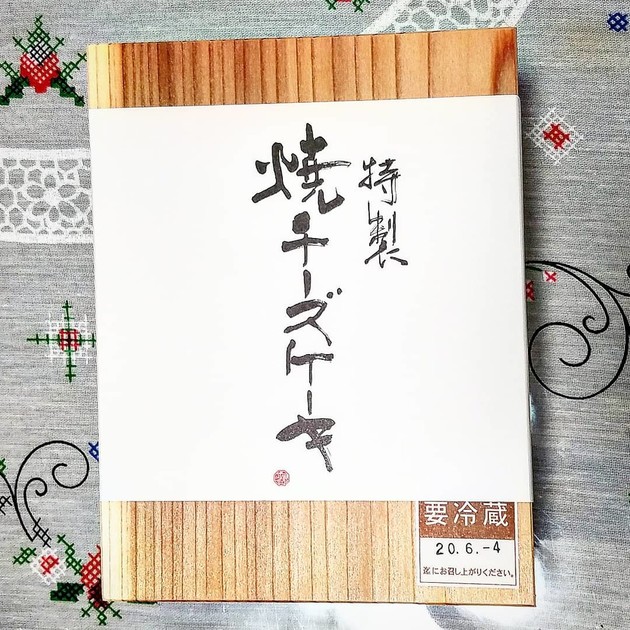 特製
焼チーズケーキ
要冷蔵
20.6.-4
迄にお召し上がりください。